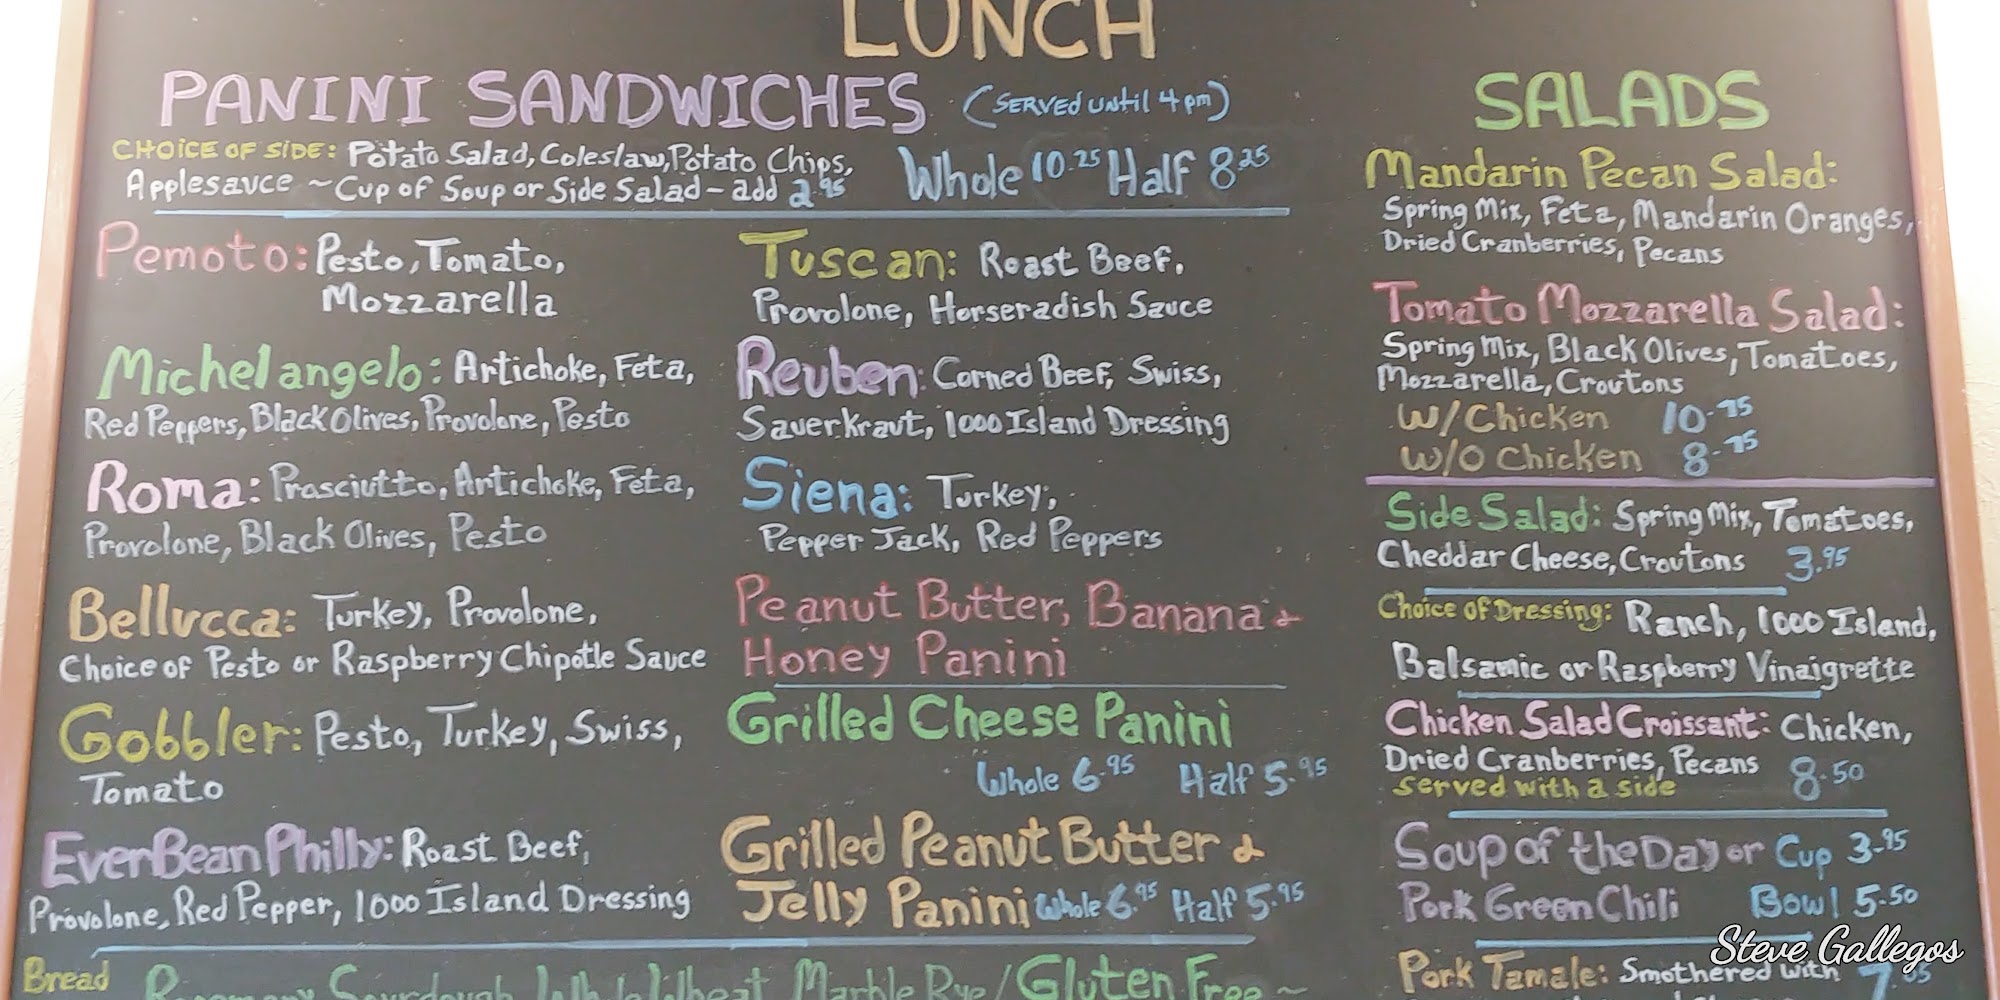 LUNCH
PANINI SANDWICHES (SERVED UNtil 4pm)
CHOICE OF SIDE: Potato Salad, Coleslaw, Potato Chips,
Applesauce ~ Cup of Soup or Side Salad - add 2.95
Whole 10.25 Half 8.25
Pemoto: Pesto, Tomato,
Mozzarella
Michelangelo: Artichoke, Feta,
Red Peppers, Black Olives, Provolone, Pesto
Roma: Prosciutto, Artichoke, Feta,
Provolone, Black Olives, Pesto
Bellucca: Turkey, Provolone,
Choice of Pesto or Raspberry Chipotle Sauce
Gobbler: Pesto, Turkey, Swiss,
Tomato
EverBean Philly: Roast Beef,
Provolone, Red Pepper, 1000 Island Dressing
Tuscan: Roast Beef,
Provolone, Horseradish Sauce
Reuben: Corned Beef, Swiss,
Sauerkraut, 1000 Island Dressing
Siena: Turkey,
Pepper Jack, Red Peppers
Peanut Butter, Banana &
Honey Panini
Grilled Cheese Panini
Whole 6.95 Half 5.95
Grilled Peanut Butter &
Jelly Panini Whole 6.95 Half 5.95
Bread Rosemary Sourdough Whole Wheat Marble Rye/Gluten Free ~
SALADS
Mandarin Pecan Salad:
Spring Mix, Feta, Mandarin Oranges,
Dried Cranberries, Pecans
Tomato Mozzarella Salad:
Spring Mix, Black Olives, Tomatoes,
Mozzarella, Croutons
W/Chicken 10.75
W/O Chicken 8.75
Side Salad: Spring Mix, Tomatoes,
Cheddar Cheese, Croutons 3.95
Choice of Dressing: Ranch, 1000 Island,
Balsamic or Raspberry Vinaigrette
Chicken Salad Croissant: Chicken,
Dried Cranberries, Pecans 8.50
served with a side
Soup of the Day or Cup 3.95
Pork Green Chili Bowl 5.50
Pork Tamale: Smothered with
Steve Gallegos